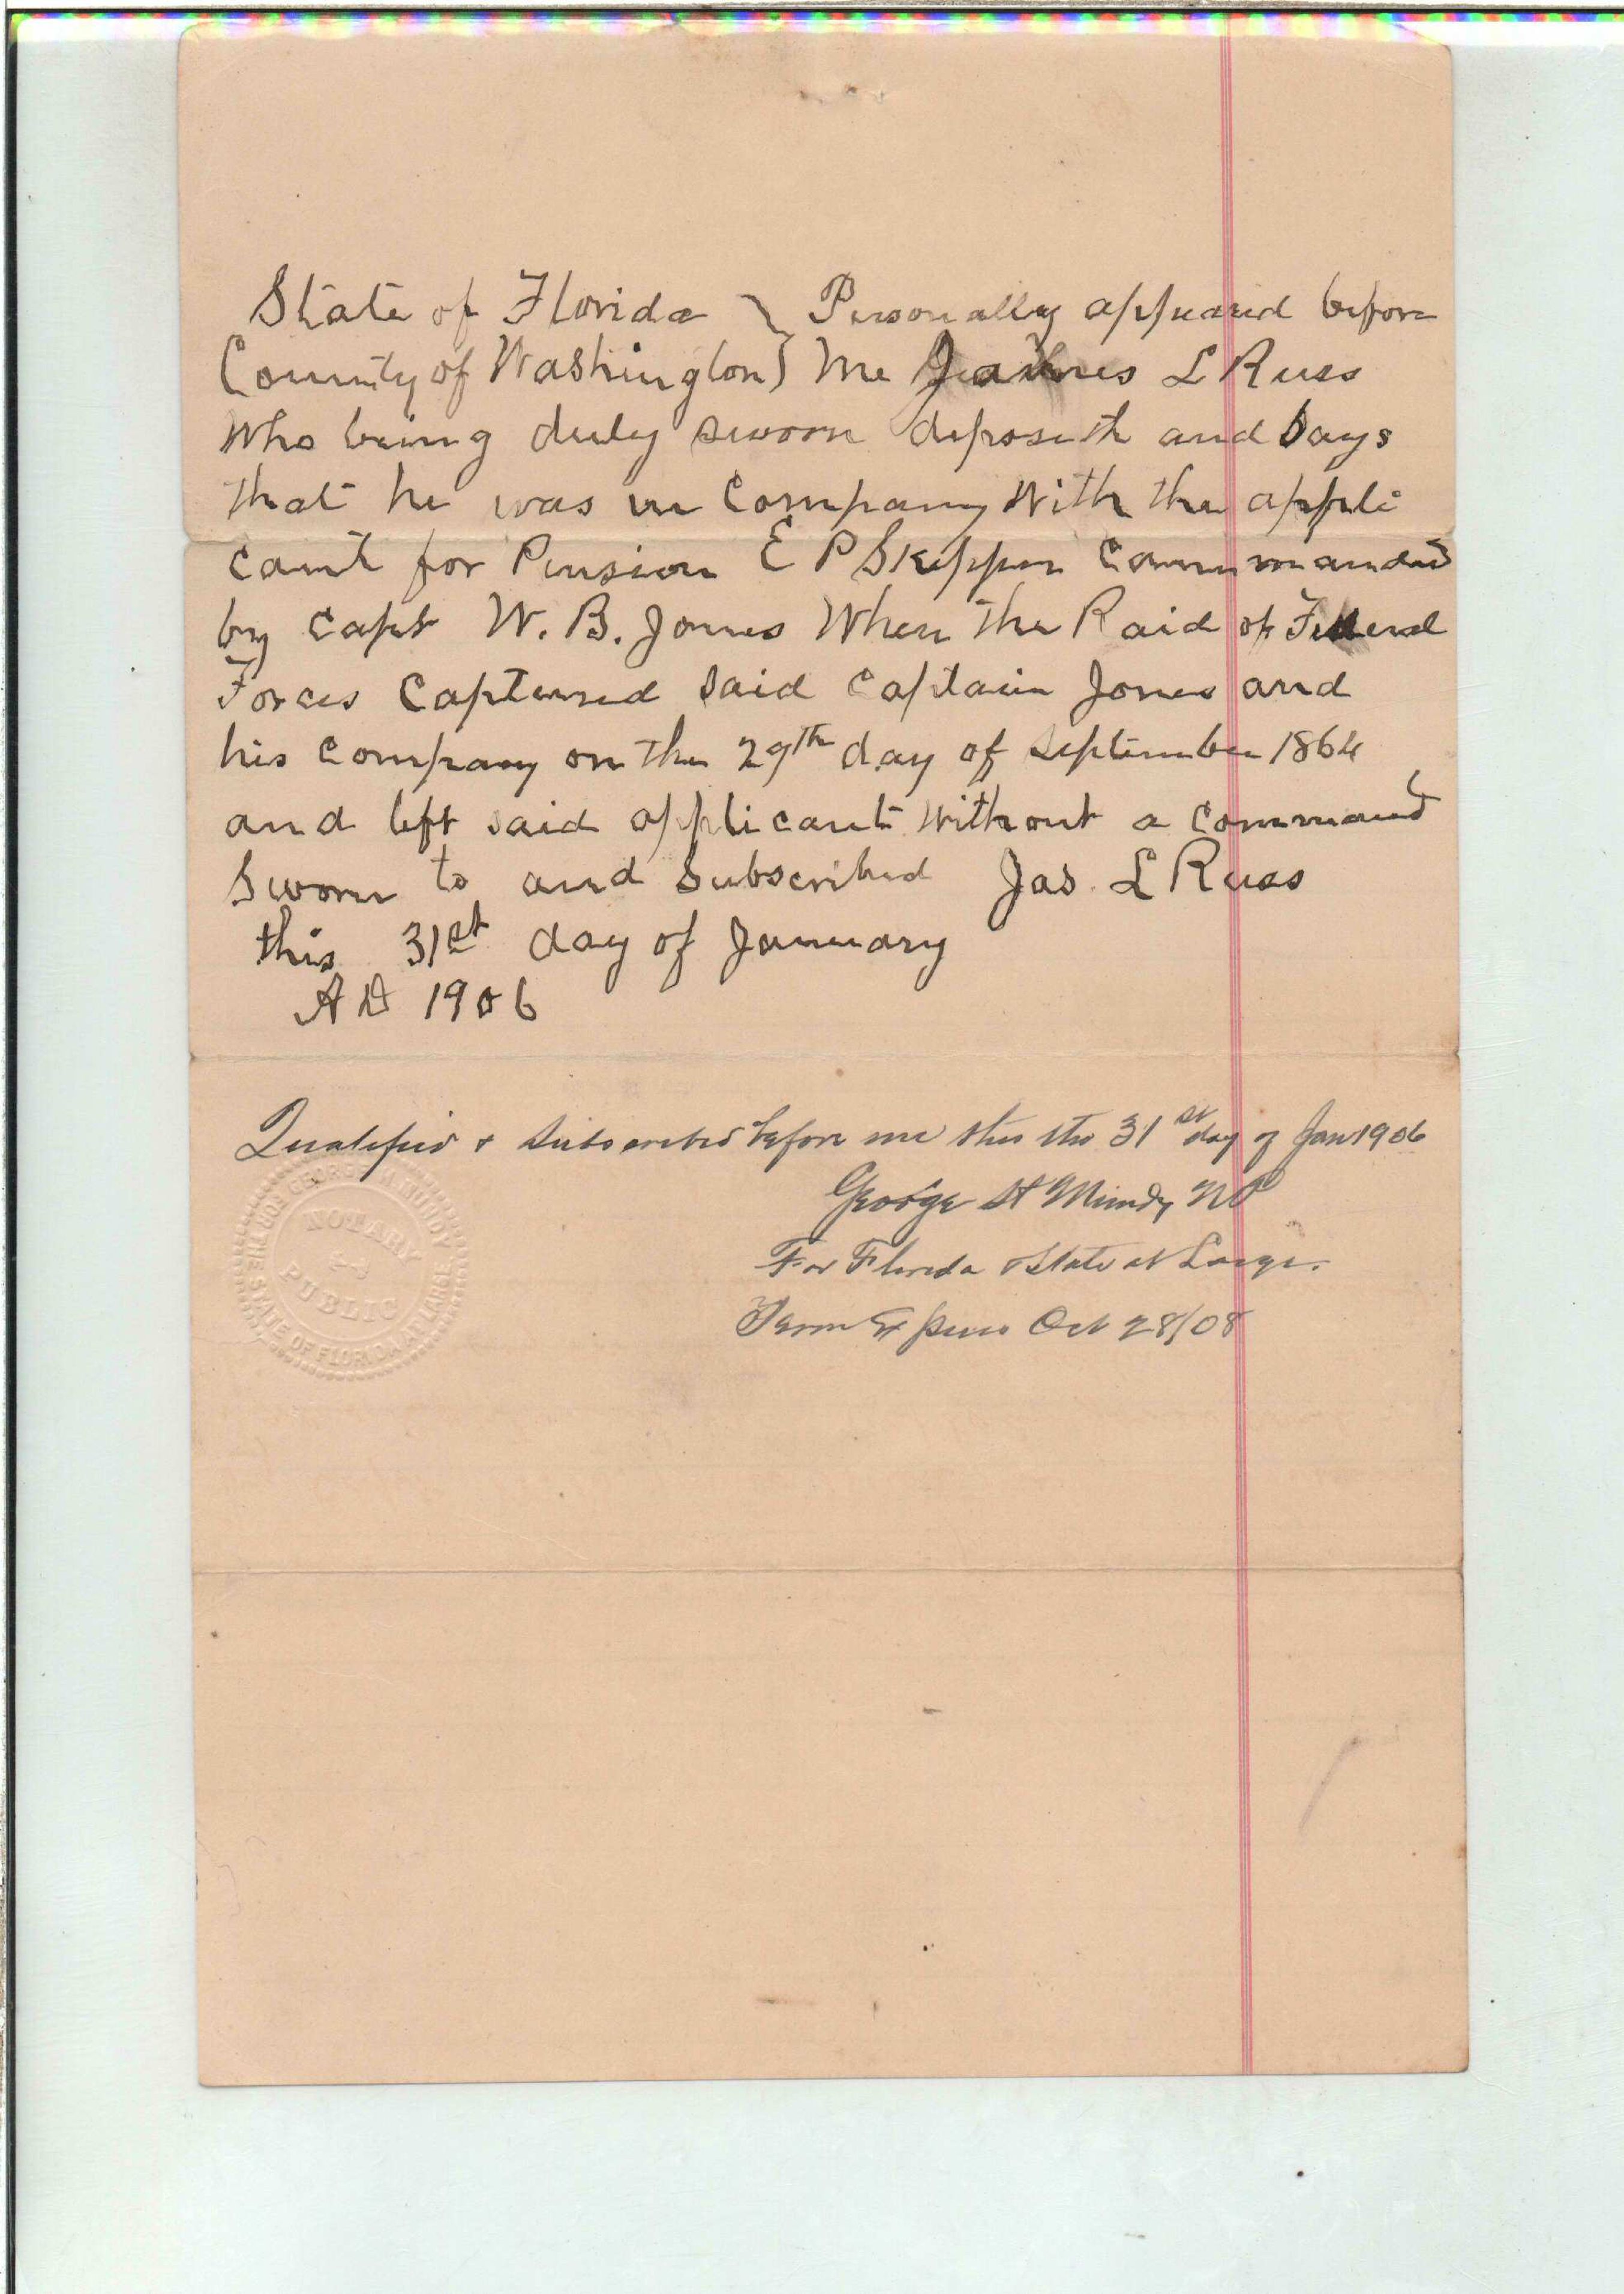 State of Florida } Personally appeared before
County of Washington } me James L Russ
Who being duly sworn deposeth and Says
that he was in Company With the appli
cant for Pension E P Skipper Commanded
by Capt W. B. Jones When the Raid of Federal
Forces Captured Said Captain Jones and
his Company on the 29th day of September 1864
and left said applicant Without a Command
Sworn to and Subscribed Jas. L Russ
this 31st day of January
AD 1906
Qualified & Subscribed before me this the 31st day of Jan 1906
George A Mundy NP
For Florida State at Large.
Term Expires Oct 28/08
GEORGE A MUNDY
NOTARY
PUBLIC
FOR THE STATE OF FLORIDA AT LARGE